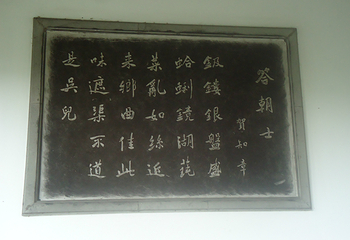 答朝士
賀知章
鈒鏤銀盤盛
蛤蜊鏡湖蒓
菜亂如絲近
来鄉曲佳此
味遮渠不道
是吳兒